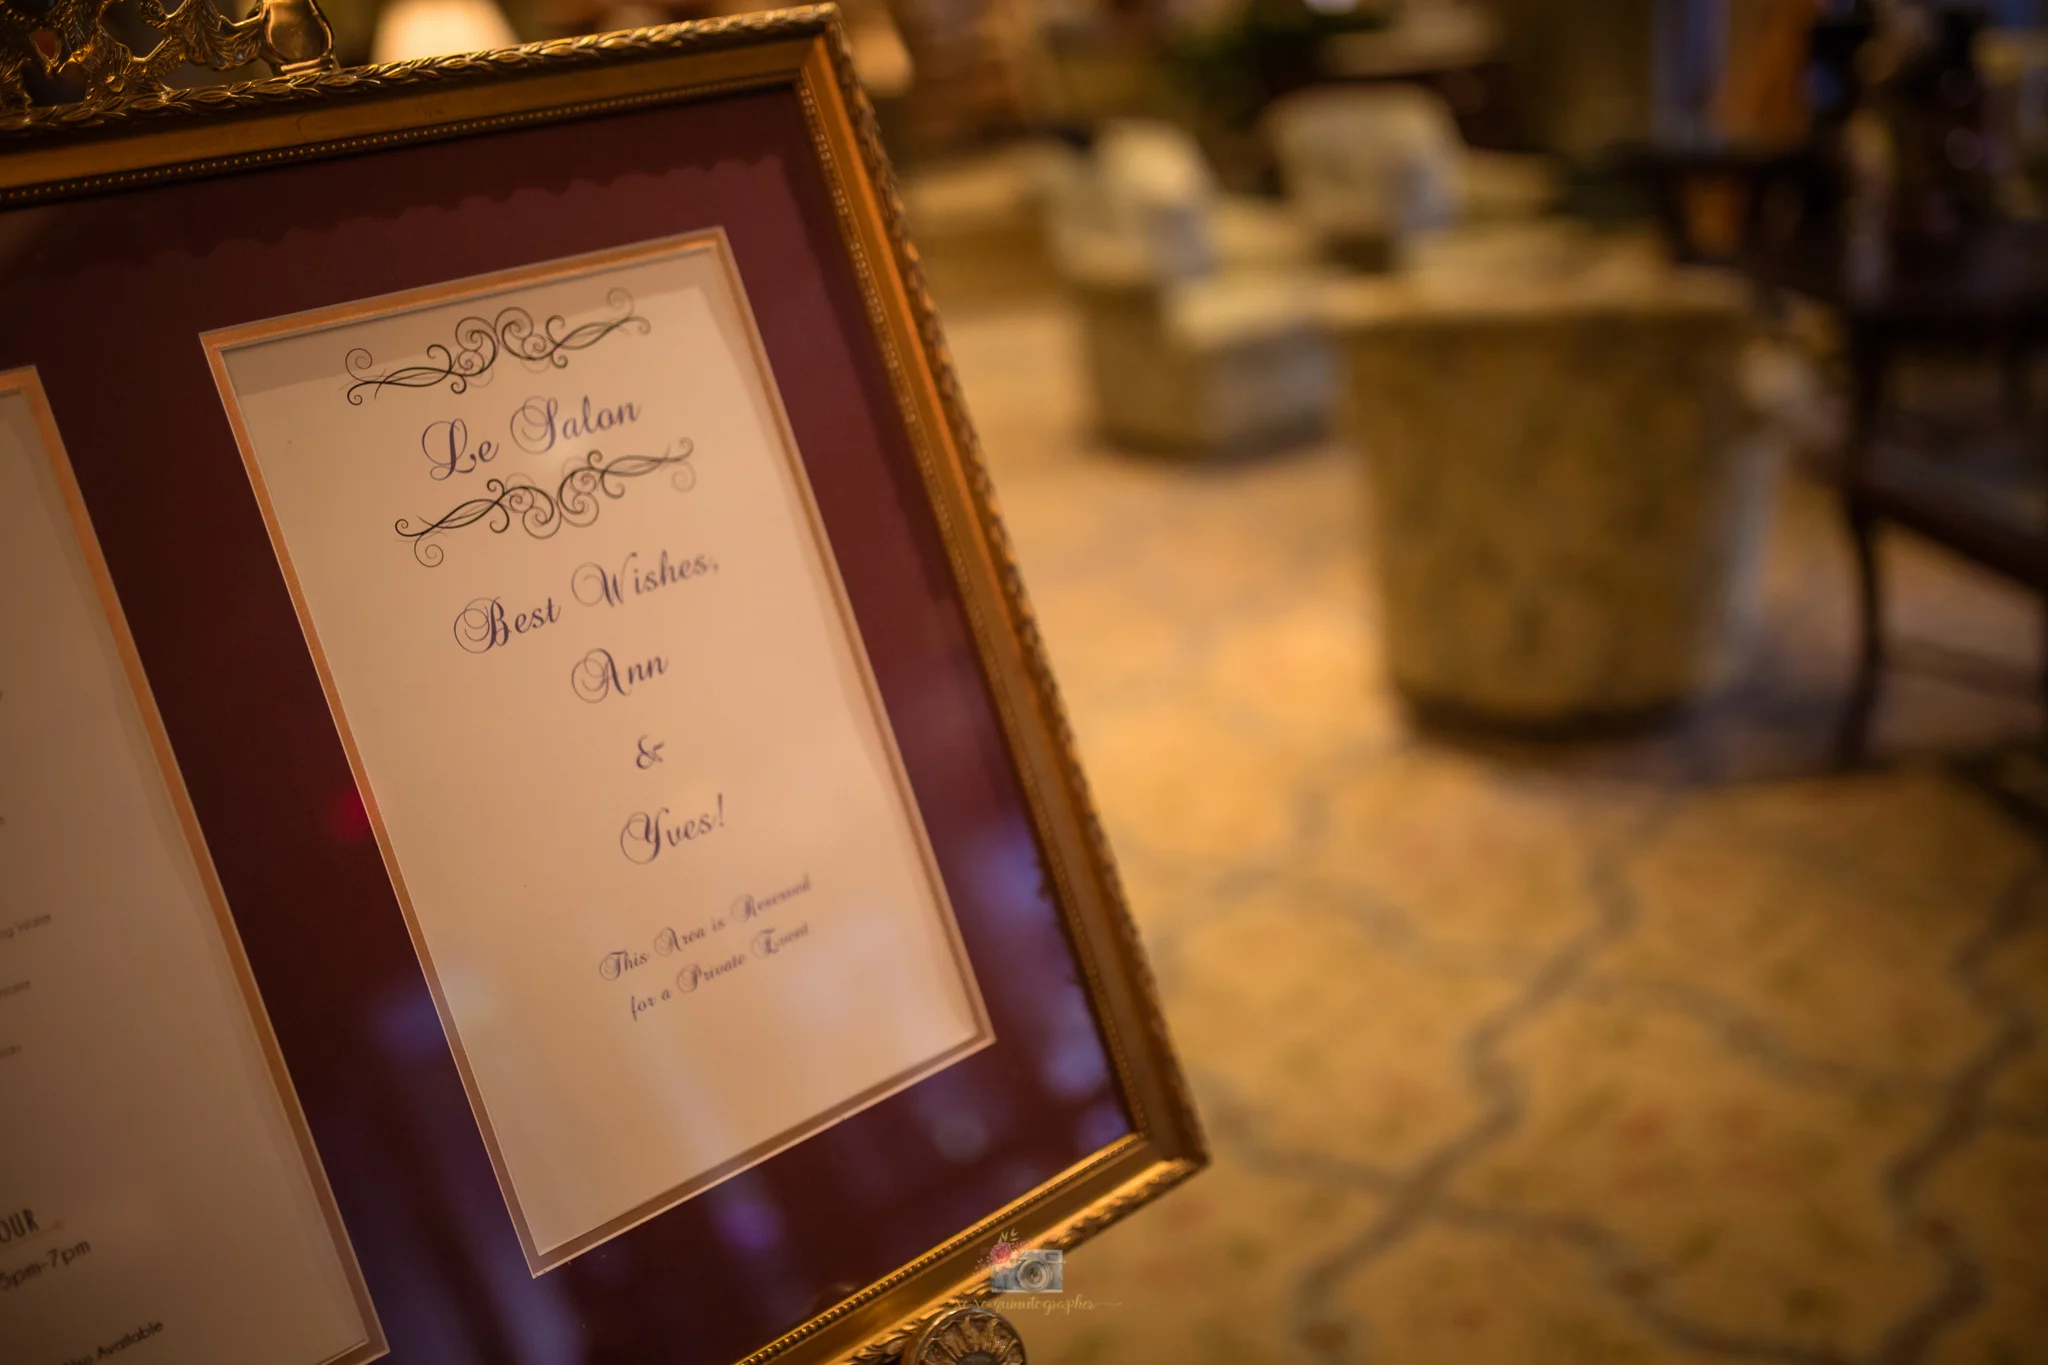 Le Salon
Best Wishes,
Ann
&
Yves!
This Area is Reserved
for a Private Event
Water
OUR
5pm-7pm
Available